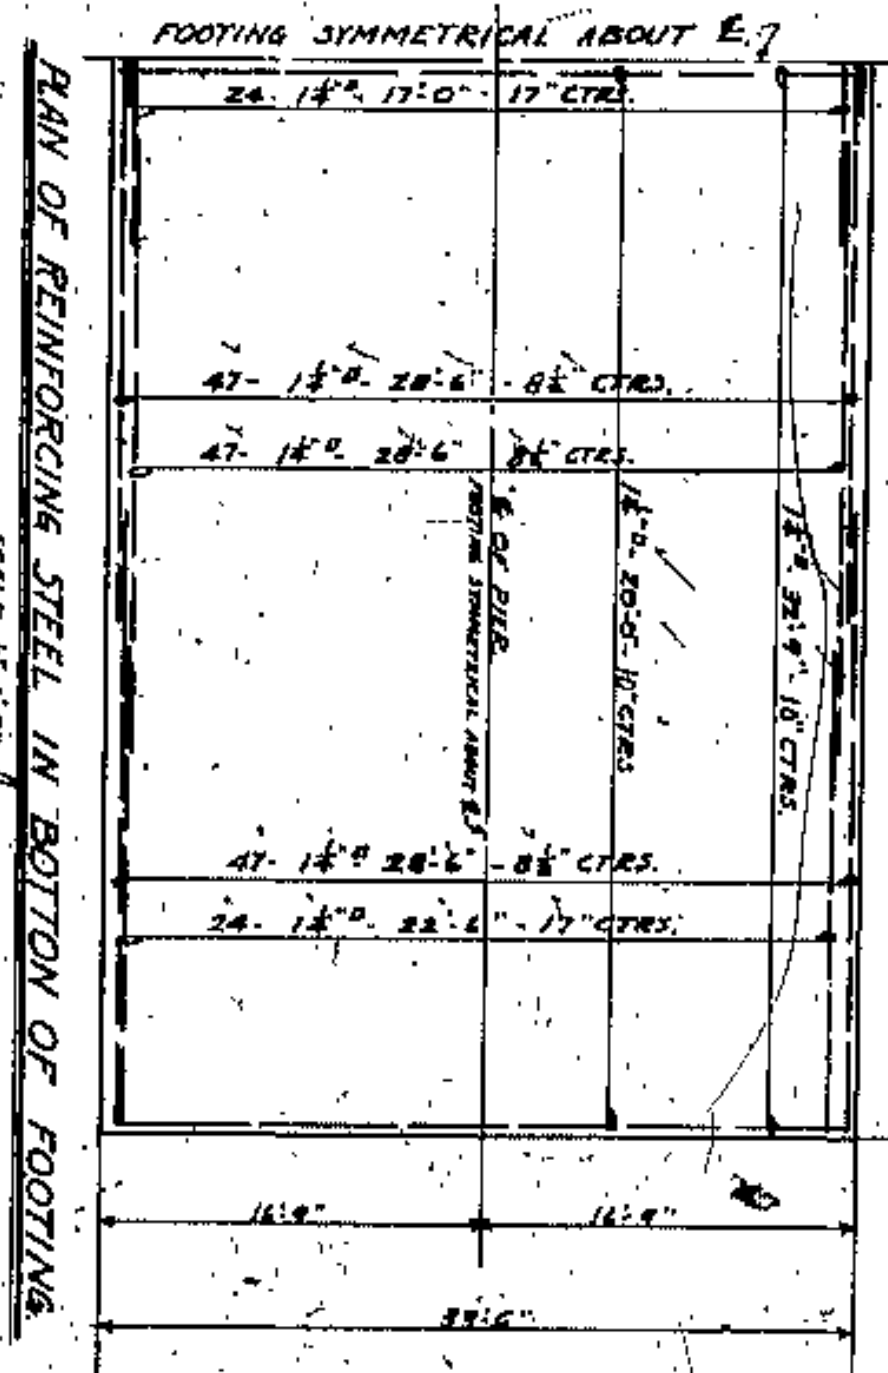 FOOTING SYMMETRICAL ABOUT ℄.
24- 1¼"□- 17'-0" - 17" CTRS.
47- 1¼"□- 28'-6" - 8½" CTRS.
47- 1¼"□- 28'-6" 8½" CTRS.
℄ OF PIER
FOOTING SYMMETRICAL ABOUT ℄
1¼"□- 20'-0"- 10" CTRS
1¼"□- 32'-9"- 10" CTRS.
47- 1¼"□ 28'-6" - 8½" CTRS.
24- 1¼"□- 22'-6" - 17" CTRS.
16'-9" 16'-9"
33'-6"
PLAN OF REINFORCING STEEL IN BOTTON OF FOOTING.